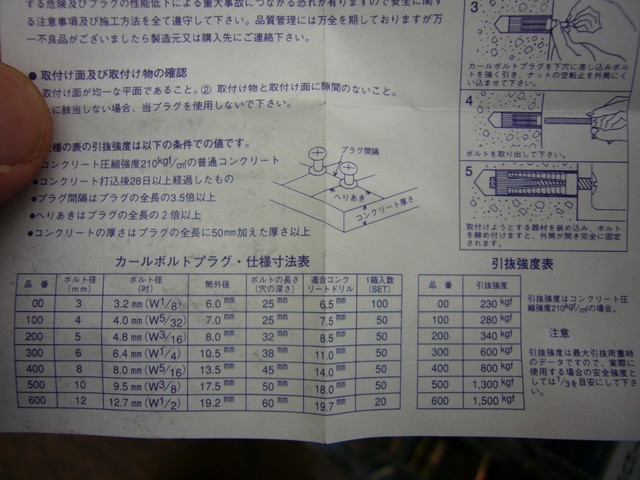 する危険及びプラグの性能低下による重大事故につながる恐れが有りますので安全に関す
る注意事項及び施工方法を全て遵守して下さい。品質管理には万全を期しておりますが万
一不良品がございましたら製造元又は購入先にご連絡下さい。
● 取付け面及び取付け物の確認
取付け面が均一な平面であること。② 取付け物と取付け面に隙間のないこと。
に該当しない場合、当プラグを使用しないで下さい。
仕様の表の引抜強度は以下の条件での値です。
●コンクリート圧縮強度210kgf/c㎡の普通コンクリート
●コンクリート打込後28日以上経過したもの
●プラグ間隔はプラグの全長の3.5倍以上
●へりあきはプラグの全長の2倍以上
●コンクリートの厚さはプラグの全長に50mm加えた厚さ以上
プラグ間隔
へりあき
コンクリート厚さ
3
カールボルトプラグを下穴に差し込みボルト
を強く引き、ナットの空転止を外筒にく
い込ませて下さい。
4
ボルトを取り出して下さい。
5
取付けようとする器材を嵌め込み、ボルト
を締め付けますと、外筒が開き完全に固定
されます。
カールボルトプラグ・仕様寸法表
品番 ボルト径(mm) ボルト径(吋) 筒外径 ボルトの長さ(穴の深さ) 適合コンクリートドリル 1箱入数(SET)
00 3 3.2mm(W1/8) 6.0mm 25mm 6.5mm 100
100 4 4.0mm(W5/32) 7.0mm 25mm 7.5mm 50
200 5 4.8mm(W3/16) 8.0mm 32mm 8.5mm 50
300 6 6.4mm(W1/4) 10.5mm 38mm 11.0mm 50
400 8 8.0mm(W5/16) 13.5mm 45mm 14.0mm 50
500 10 9.5mm(W3/8) 17.5mm 50mm 18.0mm 50
600 12 12.7mm(W1/2) 19.2mm 60mm 19.7mm 20
引抜強度表
品番 引抜強度
00 230kgf
100 280kgf
200 340kgf
300 600kgf
400 800kgf
500 1,300kgf
600 1,500kgf
引抜強度はコンクリート圧
縮強度210kgfの場合。
注意
引抜強度は最大引抜荷重時
のデータですので、実際に
使用する場合の安全強度と
しては1/3を目安にして下さ
い。